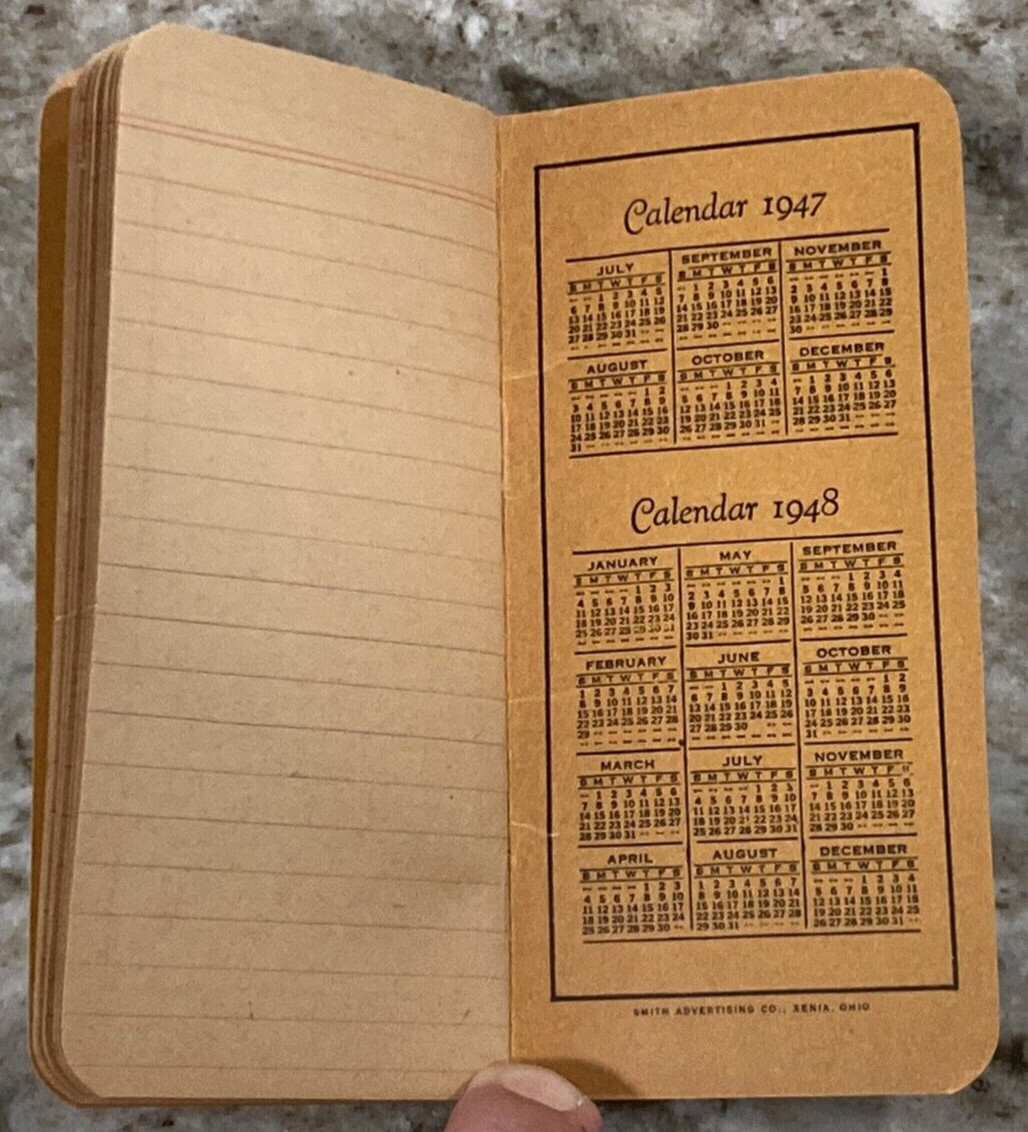 Calendar 1947
JULY
S M T W T F S
1 2 3 4 5
6 7 8 9 10 11 12
13 14 15 16 17 18 19
20 21 22 23 24 25 26
27 28 29 30 31
AUGUST
S M T W T F S
1 2
3 4 5 6 7 8 9
10 11 12 13 14 15 16
17 18 19 20 21 22 23
24 25 26 27 28 29 30
31
SEPTEMBER
S M T W T F S
1 2 3 4 5 6
7 8 9 10 11 12 13
14 15 16 17 18 19 20
21 22 23 24 25 26 27
28 29 30
OCTOBER
S M T W T F S
1 2 3 4
5 6 7 8 9 10 11
12 13 14 15 16 17 18
19 20 21 22 23 24 25
26 27 28 29 30 31
NOVEMBER
S M T W T F S
1
2 3 4 5 6 7 8
9 10 11 12 13 14 15
16 17 18 19 20 21 22
23 24 25 26 27 28 29
30
DECEMBER
S M T W T F S
1 2 3 4 5 6
7 8 9 10 11 12 13
14 15 16 17 18 19 20
21 22 23 24 25 26 27
28 29 30 31
Calendar 1948
JANUARY
S M T W T F S
1 2 3
4 5 6 7 8 9 10
11 12 13 14 15 16 17
18 19 20 21 22 23 24
25 26 27 28 29 30 31
FEBRUARY
S M T W T F S
1 2 3 4 5 6 7
8 9 10 11 12 13 14
15 16 17 18 19 20 21
22 23 24 25 26 27 28
29
MARCH
S M T W T F S
1 2 3 4 5 6
7 8 9 10 11 12 13
14 15 16 17 18 19 20
21 22 23 24 25 26 27
28 29 30 31
APRIL
S M T W T F S
1 2 3
4 5 6 7 8 9 10
11 12 13 14 15 16 17
18 19 20 21 22 23 24
25 26 27 28 29 30
MAY
S M T W T F S
1
2 3 4 5 6 7 8
9 10 11 12 13 14 15
16 17 18 19 20 21 22
23 24 25 26 27 28 29
30 31
JUNE
S M T W T F S
1 2 3 4 5
6 7 8 9 10 11 12
13 14 15 16 17 18 19
20 21 22 23 24 25 26
27 28 29 30
JULY
S M T W T F S
1 2 3
4 5 6 7 8 9 10
11 12 13 14 15 16 17
18 19 20 21 22 23 24
25 26 27 28 29 30 31
AUGUST
S M T W T F S
1 2 3 4 5 6 7
8 9 10 11 12 13 14
15 16 17 18 19 20 21
22 23 24 25 26 27 28
29 30 31
SEPTEMBER
S M T W T F S
1 2 3 4
5 6 7 8 9 10 11
12 13 14 15 16 17 18
19 20 21 22 23 24 25
26 27 28 29 30
OCTOBER
S M T W T F S
1 2
3 4 5 6 7 8 9
10 11 12 13 14 15 16
17 18 19 20 21 22 23
24 25 26 27 28 29 30
31
NOVEMBER
S M T W T F
1 2 3 4 5 6
7 8 9 10 11 12 13
14 15 16 17 18 19 20
21 22 23 24 25 26 27
28 29 30
DECEMBER
S M T W T F S
1 2 3 4
5 6 7 8 9 10 11
12 13 14 15 16 17 18
19 20 21 22 23 24 25
26 27 28 29 30 31
SMITH ADVERTISING CO., XENIA, OHIO